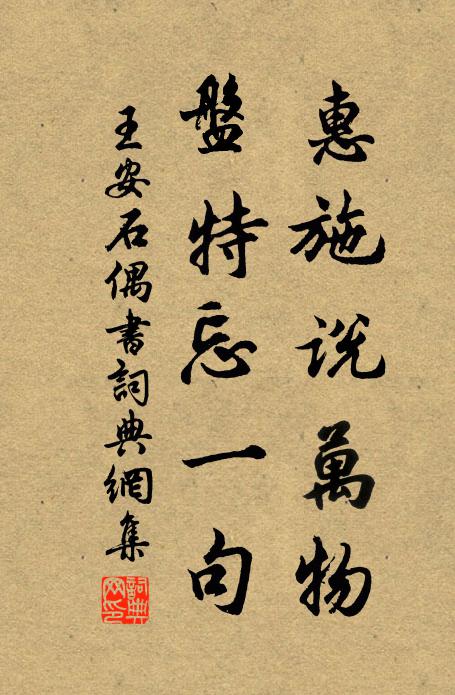 惠施說萬物
盤特忘一句
王安石偶書詞典網集
詞典網印